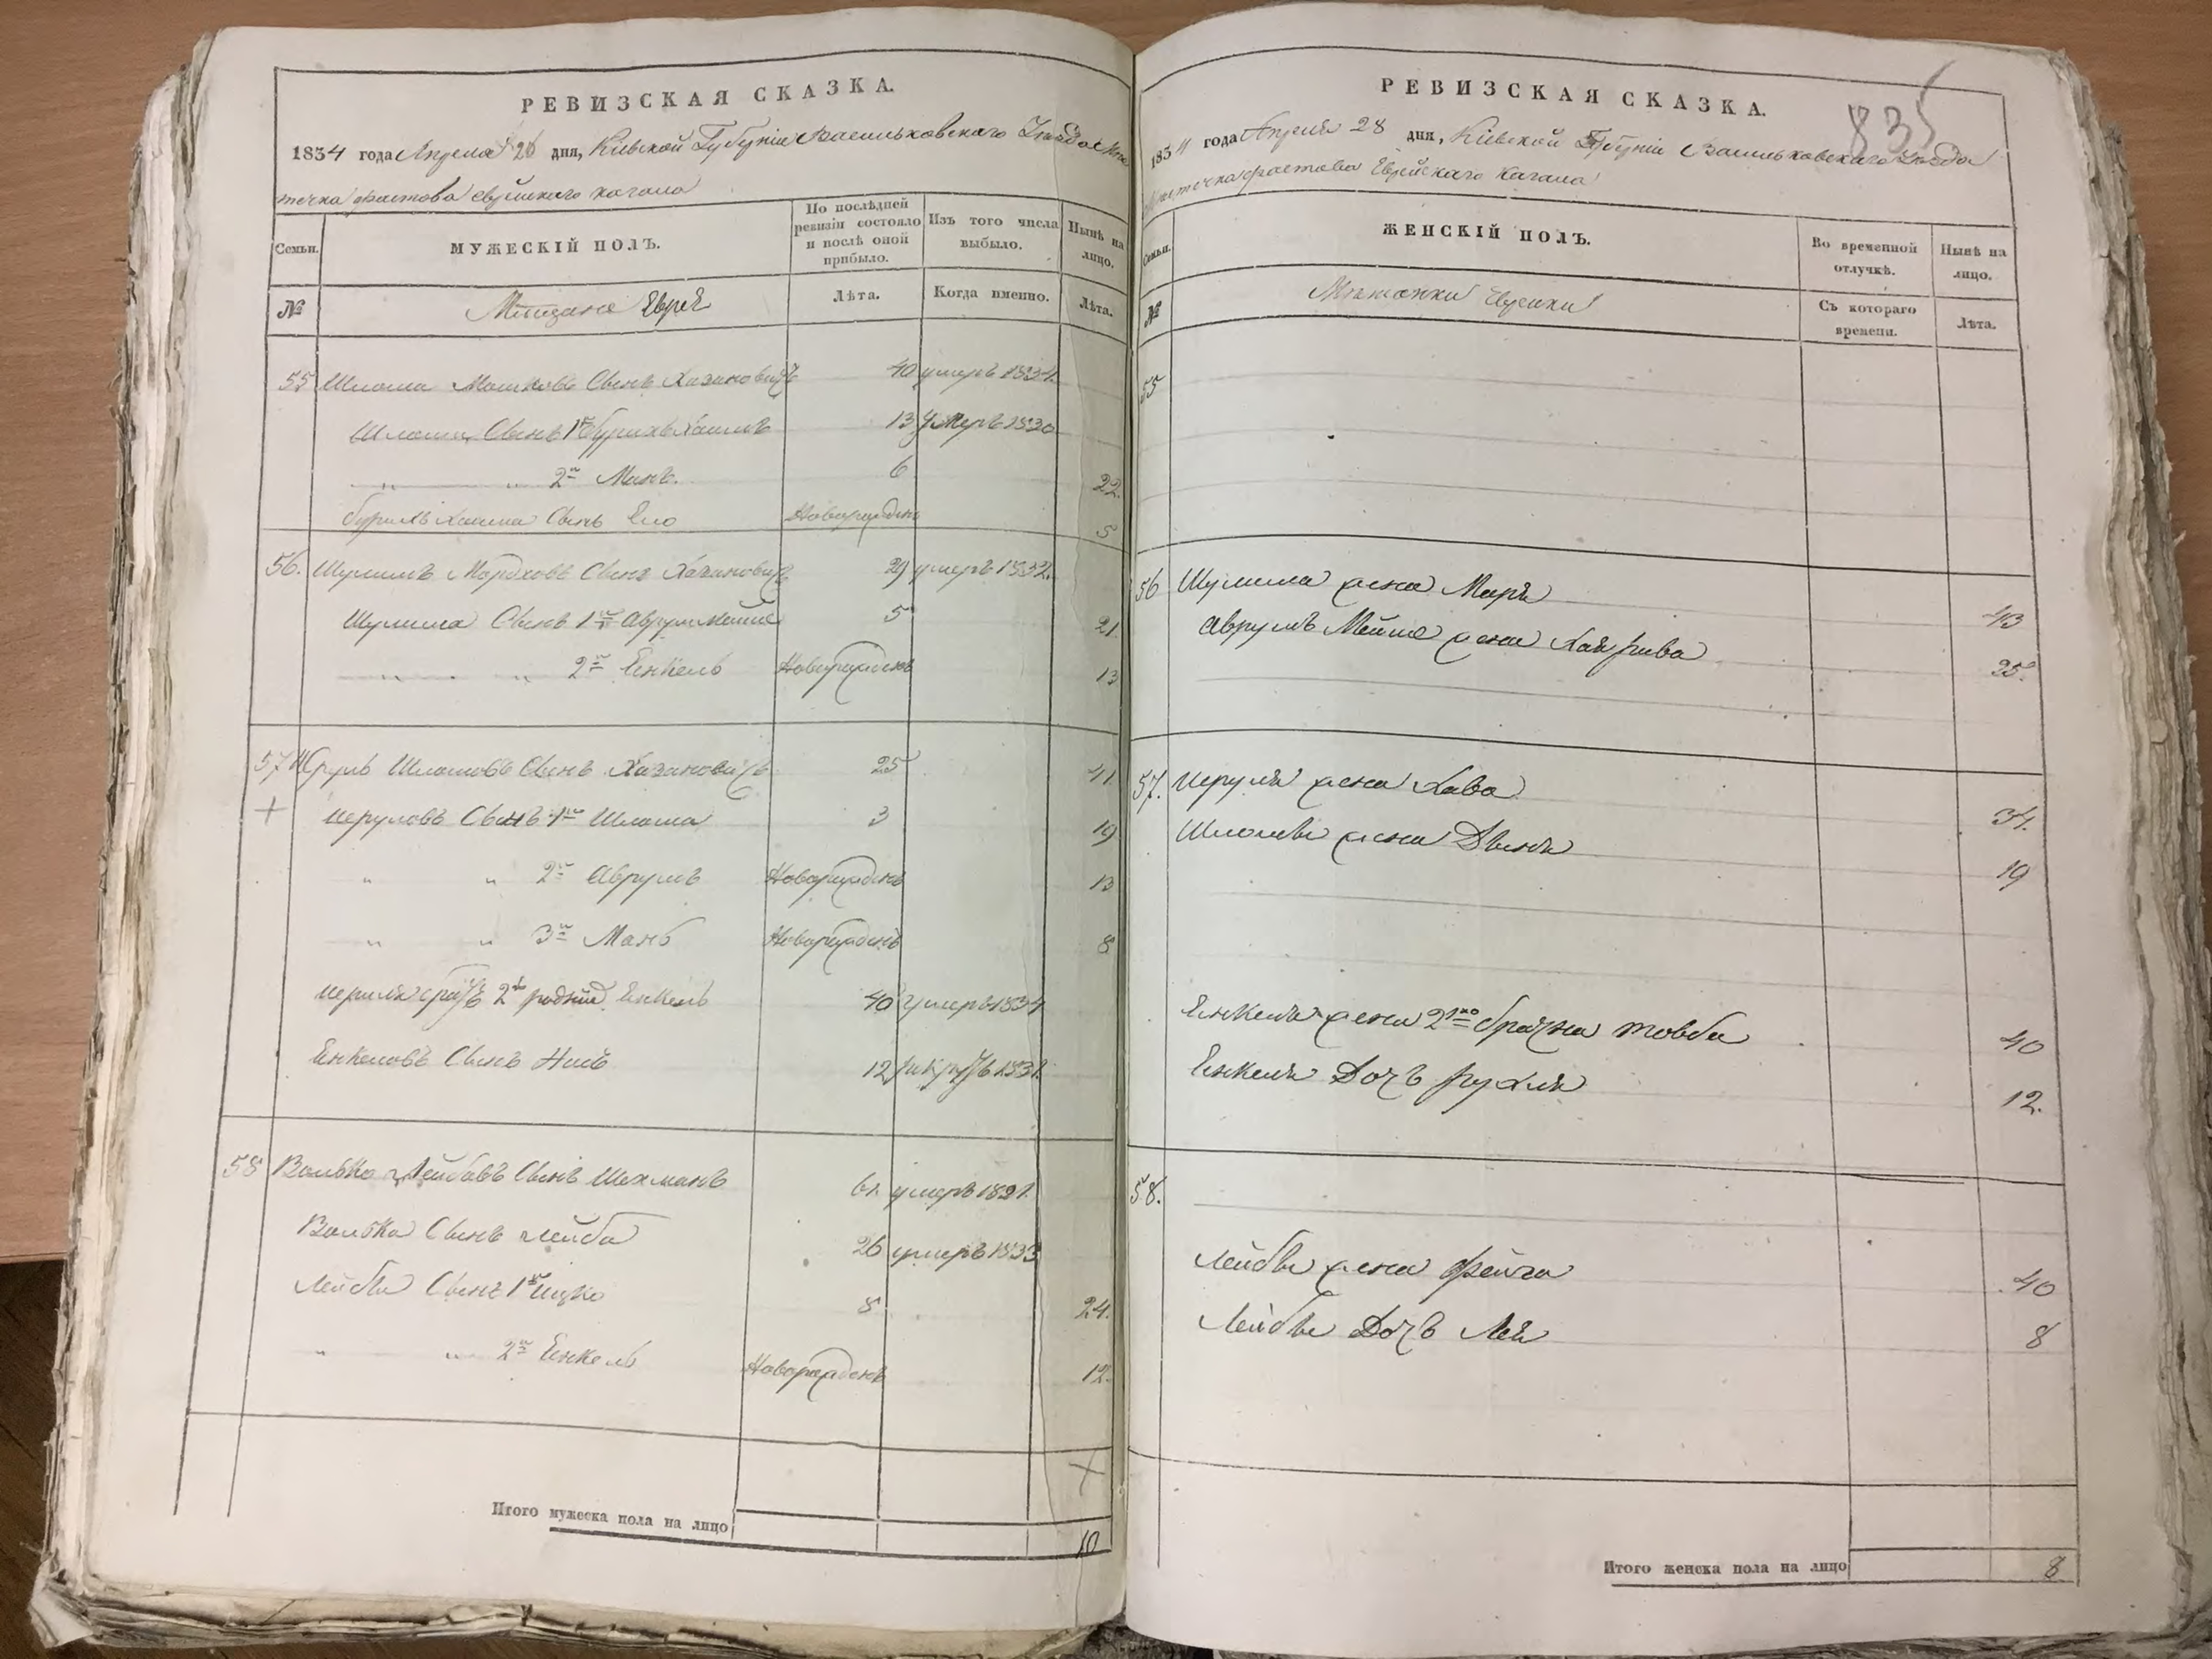 РЕВИЗСКАЯ СКАЗКА.
1834 года Апреля 28 дня, Кіевской Губерніи Васильковскаго Уезда Мес
течка Фастова Еврейскаго кагала
Семьи.
МУЖЕСКІЙ ПОЛЪ.
По послѣдней ревизіи состояло и послѣ оной прибыло.
Изъ того числа выбыло.
Нынѣ на лицо.
№
Мещане Евреи
Лѣта.
Когда именно.
Лѣта.
55 Шлома Мошковъ Сынъ Хазановичъ 40 умеръ 1834.
Шлома Сынъ 1й Бурихъ Хаимъ 13 Умеръ 1830
„ „ 2й Манъ. 6 22.
Бурихъ Хаима Сынъ Ело Новорожденъ 5
56. Шулимъ Мордковъ Сынъ Хазановичъ 29 умеръ 1832.
Шулима Сынъ 1й Аврумъ Мейше 5 21
„ „ 2й Енкель Новорожденъ 13
57 Йсрулъ Шломовъ Сынъ Хазановичъ 25 41.
Исруловъ Сынъ 1й Шлома 3 19
„ „ 2й Аврумъ Новорожденъ 13
„ „ 3й Манъ Новорожденъ 8
40 умеръ 1834
Енкеловъ Сынъ 12 рекрутъ 1831.
58 Волько Лейбовъ Сынъ Шехманъ 61. умеръ 1821.
Волька Сынъ Лейба 26 умеръ 1833
Лейбы Сынъ 1й Ицко 8 24.
„ „ 2й Енкель Новорожденъ 12.
Итого мужеска пола на лицо 10
РЕВИЗСКАЯ СКАЗКА.
835
1834 года Апреля 28 дня, Кіевской Губерніи Васильковскаго Уезда
Местечка Фастова Еврейскаго Кагала
Семьи.
ЖЕНСКІЙ ПОЛЪ.
Во временной отлучкѣ.
Нынѣ на лицо.
№
Мещанки Еврейки
Съ котораго времени.
Лѣта.
55
56 Шулима жена Маря 43
Аврумъ Мейше жена Хая Рива 25.
57. Исруля жена Хава 34.
Шломы жена Двыня 19
Енкеля жена 2 брачна Товба 40
Енкеля Дочъ Рухля 12.
58.
Лейбы жена Фейга 40
Лейбы Дочъ Лея 8
Итого женска пола на лицо 8.